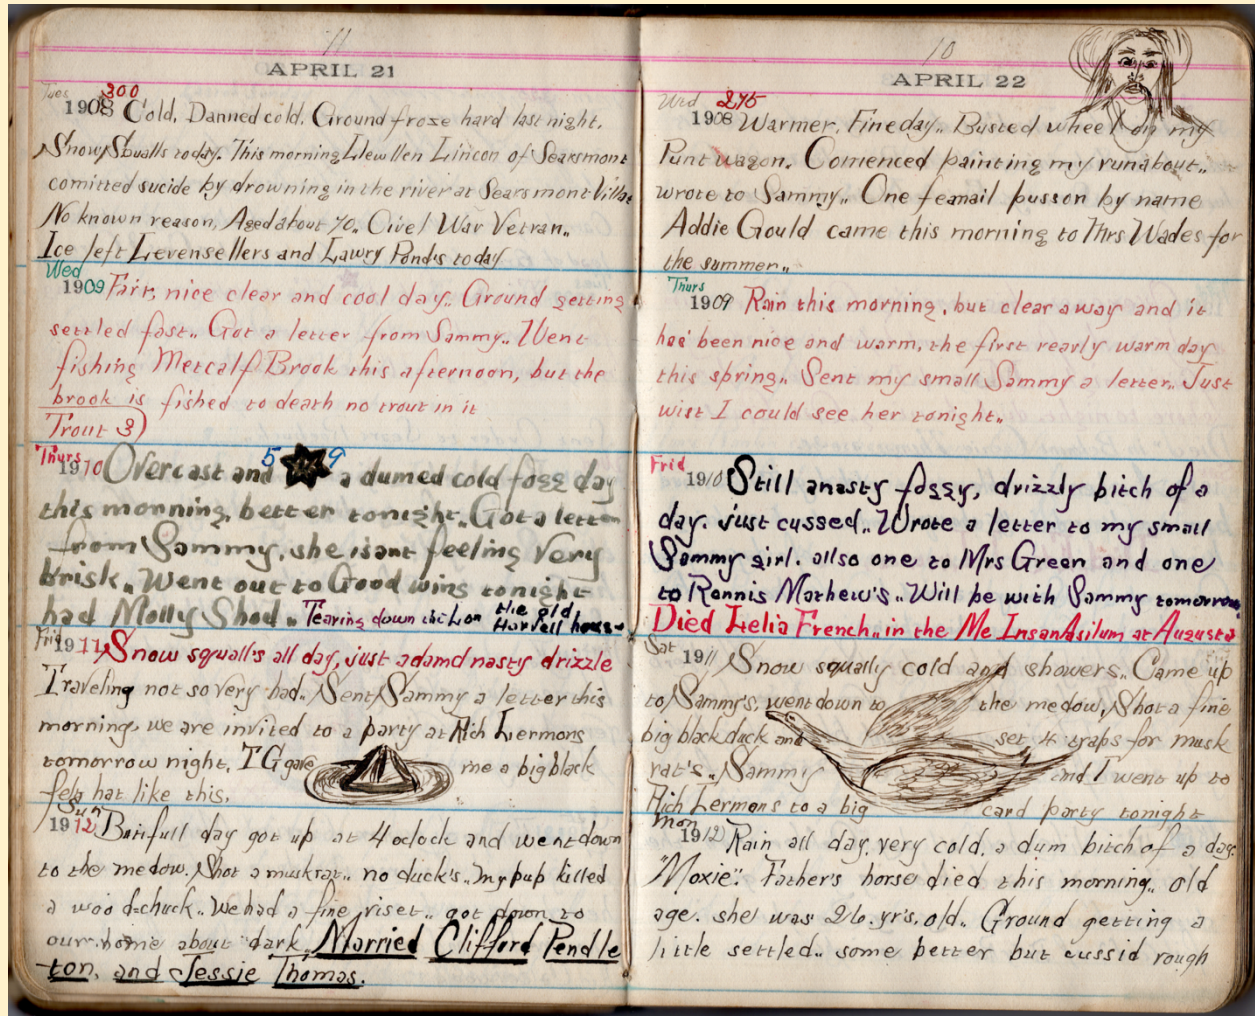 11
APRIL 21
Tues 300
1908 Cold, Damned cold. Ground froze hard last night.
Snow Squalls today. This morning Llewllen Lincon of Searsmont
comitted sucide by drowning in the river at Searsmont Villa
No known reason, Aged about 70.. Civel War Vetran..
Ice left Levensellers and Lawry Pond's today
Wed
1909 Fair, nice clear and cool day.. Ground getting
settled fast.. Got a letter from Sammy.. Went
fishing Metcalf Brook this afternoon, but the
brook is fished to death no trout in it
Trout 3
Thurs 5 9
1910 Overcast and a dumed cold fogg day
this morning, better tonight.. Got a letter
from Sammy, she isant feeling very
brisk.. Went out to Good wins tonight
had Molly Shod.. Tearing down the old
Harvell house
Fri
1911 Snow squall's all day, just adamd nasty drizzle
Traveling not so very bad.. Sent Sammy a letter this
morning we are invited to a party at Rich Lermons
tomorrow night. TG gave me a big black
felp hat like this.
Sun
1912 Butifull day got up at 4 oclock and went down
to the medow. Shot a muskrat.. no duck's.. my pup killed
a wood-chuck.. We had a fine riset.. got down to
our home about dark. Married Clifford Pendle
ton, and Jessie Thomas.
10
APRIL 22
Wed 275
1908 Warmer, Fine day.. Busted wheel on my
Punt wagon. Comenced painting my runabout..
wrote to Sammy.. One feamail pusson by name
Addie Gould came this morning to Mrs Wades for
the summer..
Thurs
1909 Rain this morning, but clear away and it
has been nice and warm, the first rearly warm day
this spring.. Sent my small Sammy a letter.. Just
wist I could see her tonight..
Frid
1910 Still a nasty foggy, drizzly bitch of a
day. just cussed.. Wrote a letter to my small
Sammy girl. allso one to Mrs Green and one
to Ronnis Mathew's.. Will be with Sammy tomorrow.
Died Lelia French.. in the Me Insan Asilum at Augusta
Sat
1911 Snow squally cold and showers.. Came up
to Sammy's, went down to the medow, Shot a fine
big black duck and set 4 traps for musk
rat's.. Sammy and I went up to
Rich Lermons to a big card party tonight
Mon
1912 Rain all day, very cold, a dum bitch of a day.
"Moxie". Father's horse died this morning.. old
age. she was 26. yr's. old.. Ground getting a
little settled.. some better but cussid rough